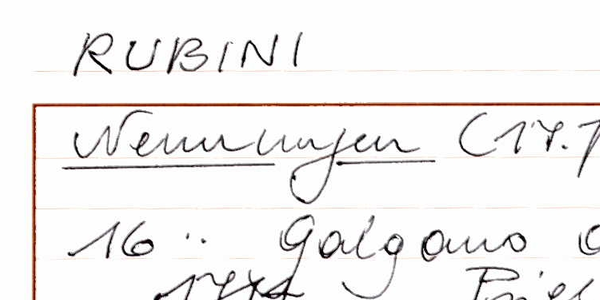 RUBINI
Nennungen (17.
16.. Galgano